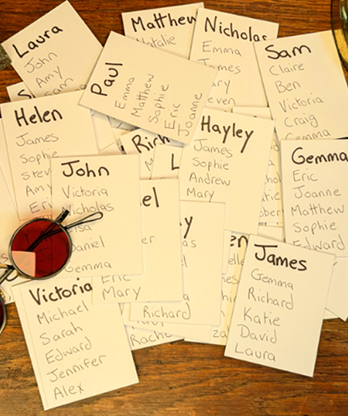 Laura
John
Amy
Matthew
Natalie
Nicholas
Emma
James
Sam
Claire
Ben
Victoria
Craig
Gemma
Paul
Emma
Matthew
Sophie
Eric
Joanne
Helen
James
Sophie
Steve
Amy
Hayley
James
Sophie
Andrew
Mary
Gemma
Eric
Joanne
Matthew
Sophie
Edward
John
Victoria
Nicholas
Daniel
Gemma
Eric
Mary
Richard
James
Gemma
Richard
Katie
David
Laura
Victoria
Michael
Sarah
Edward
Jennifer
Alex